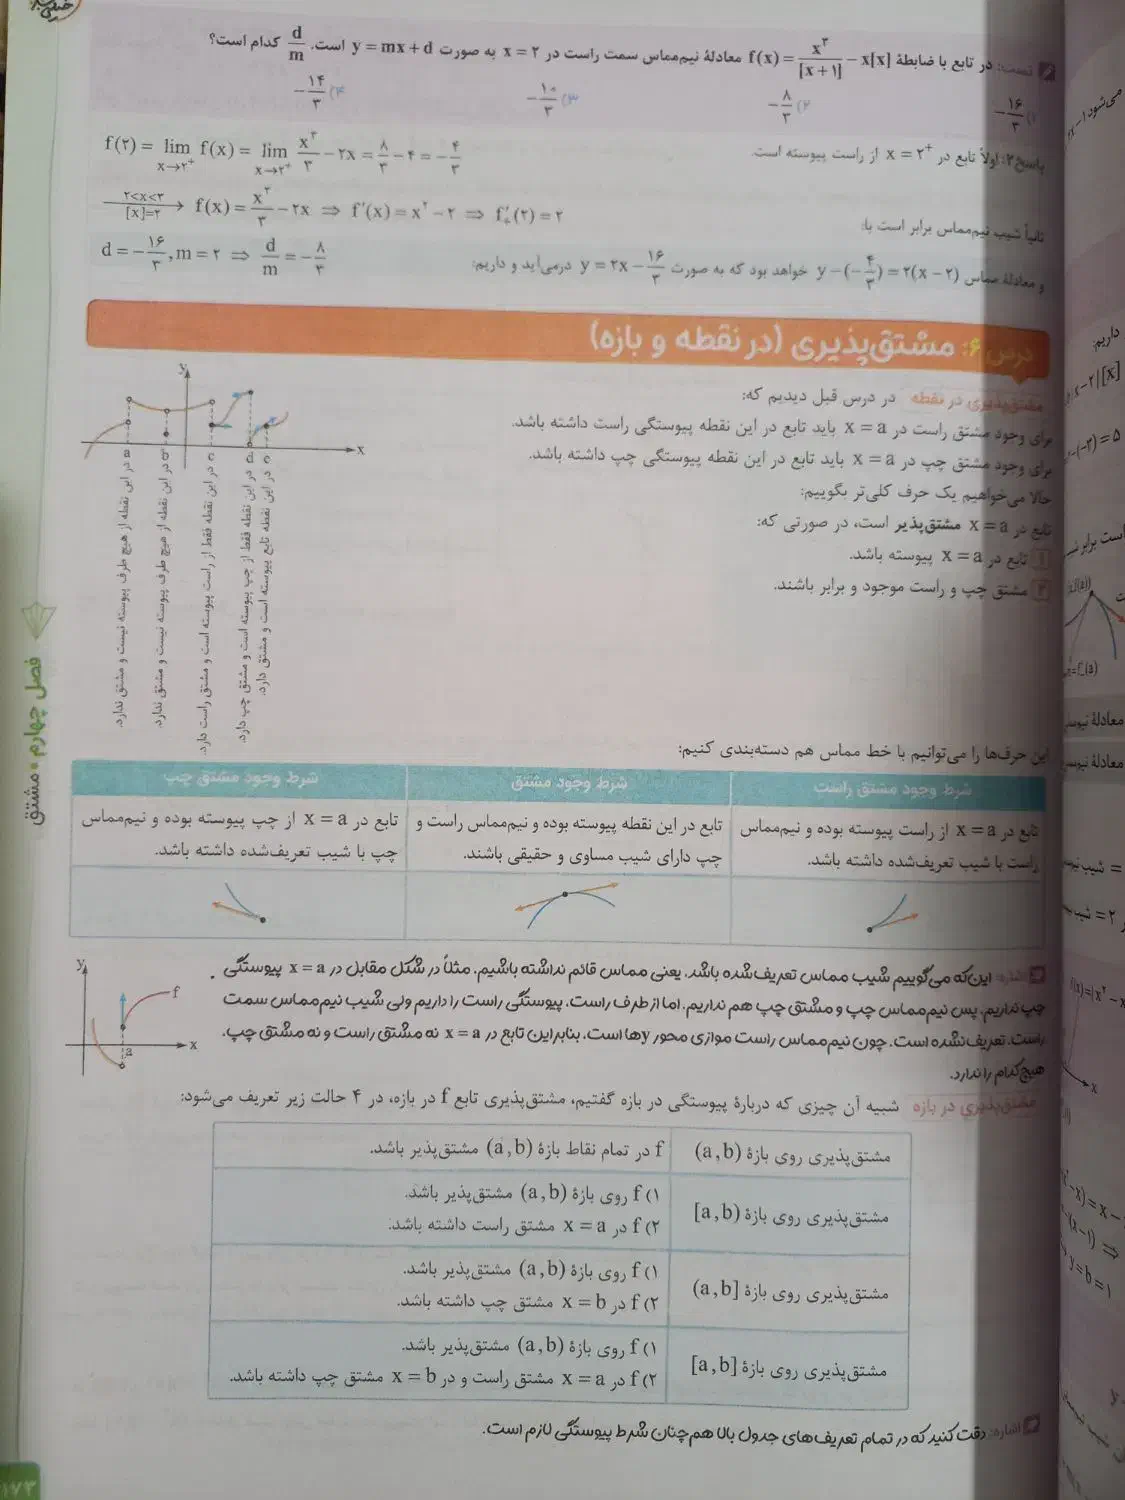 تست: در تابع با ضابطهٔ f(x) = x³/[x+1] − x[x] معادلهٔ نیم‌مماس سمت راست در x = ۲ به صورت y = mx + d است. d/m کدام است؟
۱) −۱۶/۳ ۲) −۸/۳ ۳) −۱۰/۳ ۴) −۱۴/۳
پاسخ ۲: اولاً تابع در x = ۲⁺ از راست پیوسته است.
f(۲) = lim x→۲⁺ f(x) = lim x→۲⁺ x³/۳ − ۲x = ۸/۳ − ۴ = −۴/۳
ثانیاً شیب نیم‌مماس برابر است با:
۲<x<۳ [x]=۲ → f(x) = x³/۳ − ۲x ⇒ f′(x) = x² − ۲ ⇒ f′₊(۲) = ۲
و معادلهٔ مماس y − (−۴/۳) = ۲(x − ۲) خواهد بود که به صورت y = ۲x − ۱۶/۳ درمی‌آید و داریم:
d = −۱۶/۳, m = ۲ ⇒ d/m = −۸/۳
درس ۶: مشتق‌پذیری (در نقطه و بازه)
مشتق‌پذیری در نقطه در درس قبل دیدیم که:
برای وجود مشتق راست در x = a باید تابع در این نقطه پیوستگی راست داشته باشد.
برای وجود مشتق چپ در x = a باید تابع در این نقطه پیوستگی چپ داشته باشد.
حالا می‌خواهیم یک حرف کلی‌تر بگوییم:
تابع در x = a مشتق‌پذیر است، در صورتی که:
۱ تابع در x = a پیوسته باشد.
۲ مشتق چپ و راست موجود و برابر باشند.
y
x
a در این نقطه از هیچ طرف پیوسته نیست و مشتق ندارد.
در این نقطه از هیچ طرف پیوسته نیست و مشتق ندارد.
c در این نقطه فقط از راست پیوسته است و مشتق راست دارد.
d در این نقطه فقط از چپ پیوسته است و مشتق چپ دارد.
e در این نقطه تابع پیوسته است و مشتق دارد.
این حرف‌ها را می‌توانیم با خط مماس هم دسته‌بندی کنیم:
شرط وجود مشتق راست
شرط وجود مشتق
شرط وجود مشتق چپ
تابع در x = a از راست پیوسته بوده و نیم‌مماس
راست با شیب تعریف‌شده داشته باشد.
تابع در این نقطه پیوسته بوده و نیم‌مماس راست و
چپ دارای شیب مساوی و حقیقی باشند.
تابع در x = a از چپ پیوسته بوده و نیم‌مماس
چپ با شیب تعریف‌شده داشته باشد.
اشاره: این‌که می‌گوییم شیب مماس تعریف‌شده باشد، یعنی مماس قائم نداشته باشیم. مثلاً در شکل مقابل در x = a پیوستگی
چپ نداریم، پس نیم‌مماس چپ و مشتق چپ هم نداریم. اما از طرف راست، پیوستگی راست را داریم ولی شیب نیم‌مماس سمت
راست، تعریف‌نشده است. چون نیم‌مماس راست موازی محور yها است، بنابراین تابع در x = a نه مشتق راست و نه مشتق چپ،
هیچ‌کدام را ندارد.
y
f
a
x
مشتق‌پذیری در بازه شبیه آن چیزی که دربارهٔ پیوستگی در بازه گفتیم، مشتق‌پذیری تابع f در بازه، در ۴ حالت زیر تعریف می‌شود:
مشتق‌پذیری روی بازهٔ (a, b)
f در تمام نقاط بازهٔ (a, b) مشتق‌پذیر باشد.
مشتق‌پذیری روی بازهٔ [a, b)
۱) f روی بازهٔ (a, b) مشتق‌پذیر باشد.
۲) f در x = a مشتق راست داشته باشد.
مشتق‌پذیری روی بازهٔ (a, b]
۱) f روی بازهٔ (a, b) مشتق‌پذیر باشد.
۲) f در x = b مشتق چپ داشته باشد.
مشتق‌پذیری روی بازهٔ [a, b]
۱) f روی بازهٔ (a, b) مشتق‌پذیر باشد.
۲) f در x = a مشتق راست و در x = b مشتق چپ داشته باشد.
اشاره: دقت کنید که در تمام تعریف‌های جدول بالا هم‌چنان شرط پیوستگی لازم است.
فصل چهارم • مشتق
۱۷۳
می‌شود
داریم:
معادلهٔ
معادلهٔ
y = b = ۱